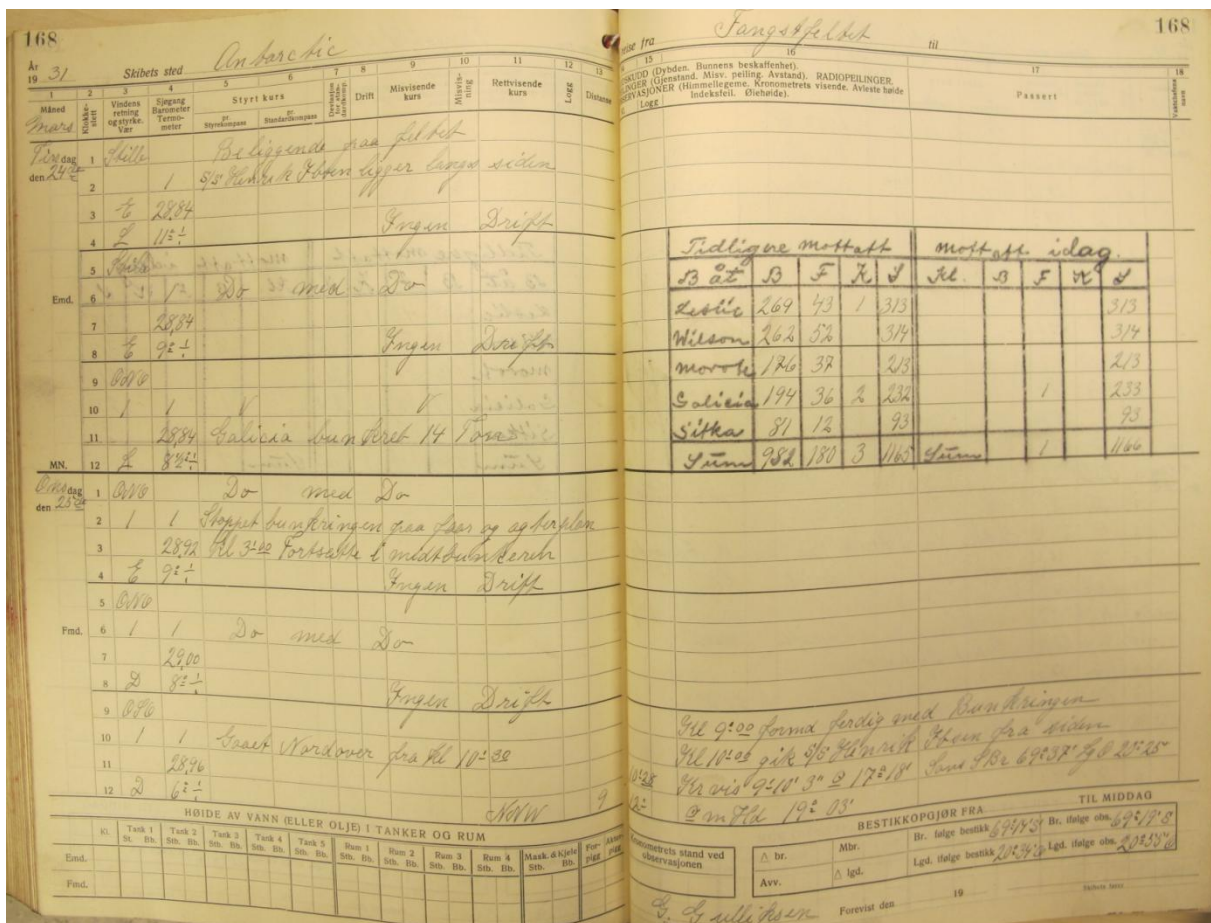 168
År 1931 Skibets sted Antarctic
1 2 3 4 5 6 7 8 9 10 11 12 13
Måned Klokkeslett Vindens retning og styrke. Vær Sjøgang Barometer Termometer Styrt kurs pr. Styrekompass pr. Standardkompass Drift Misvisende kurs Misvisning Rettvisende kurs Logg Distanse
Mars
Tirsdag 1 Stille Beliggende paa feltet
den 24de 2 1 S/S Henrik Ibsen ligger langs siden
3 E 28,84
4 L 11° Ingen Drift
5 Stille
Emd. 6 1 Do med Do
7 28,84
8 E 9° Ingen Drift
9 ONO
10 1 1
11 28,84 Galicia bunkret 14 Tons
MN. 12 L 8
Onsdag 1 ONO Do med Do
den 25de 2 1 1 Stoppet bunkringen paa foor og agterplan
3 28,92 Kl 3:00 Fortsatte i midtbunkeren
4 E 9° Ingen Drift
5 ONO
Fmd. 6 1 1 Do med Do
7 29,00
8 D 8° Ingen Drift
9 OSO
10 1 1 Gaaet Nordover fra Kl 10:30
11 28,96
12 D 6° NoNW 9
HØIDE AV VANN (ELLER OLJE) I TANKER OG RUM
Kl. Tank 1 Tank 2 Tank 3 Tank 4 Tank 5 Rum 1 Rum 2 Rum 3 Rum 4 Mask. & Kjele For-pigg Akter-pigg
St. Bb. St. Bb. St. Bb. St. Bb. St. Bb. Stb. Bb. Stb. Bb. Stb. Bb. Stb. Bb. Stb. Bb.
Emd.
Fmd.
reise fra Fangstfeltet til
168
15 16 17 18
(Dybden. Bunnens beskaffenhet).
(Gjenstand. Misv. peiling. Avstand). RADIOPEILINGER.
(Himmellegeme. Kronometrets visende. Avleste høide
Logg Indeksfeil. Øiehøide).
Passert
Tidligere mottatt mottatt idag.
Båt B F K S Kl. B F K S
Leslie 269 43 1 313 313
Wilson 262 52 314 314
Morote 176 37 213 213
Galicia 194 36 2 232 1 233
Sitka 81 12 93 93
Sum 982 180 3 1165 Sum 1 1166
Kl 9:00 formd ferdig med Bunkringen
Kl 10:00 gik S/S Henrik Ibsen fra siden
10:28 Kr vis 9:10' 3" 17° 18' Br 69° 37' 20° 25'
12 m Hd 19° 03'
BESTIKKOPGJØR FRA TIL MIDDAG
Kronometrets stand ved observasjonen
Δ br. Mbr. Br. følge bestikk Br. ifølge obs. 69° 19' S
Avv. Δ lgd. Lgd. ifølge bestikk Lgd. ifølge obs.
G. Gulliksen Forevist den 19
Skibets fører